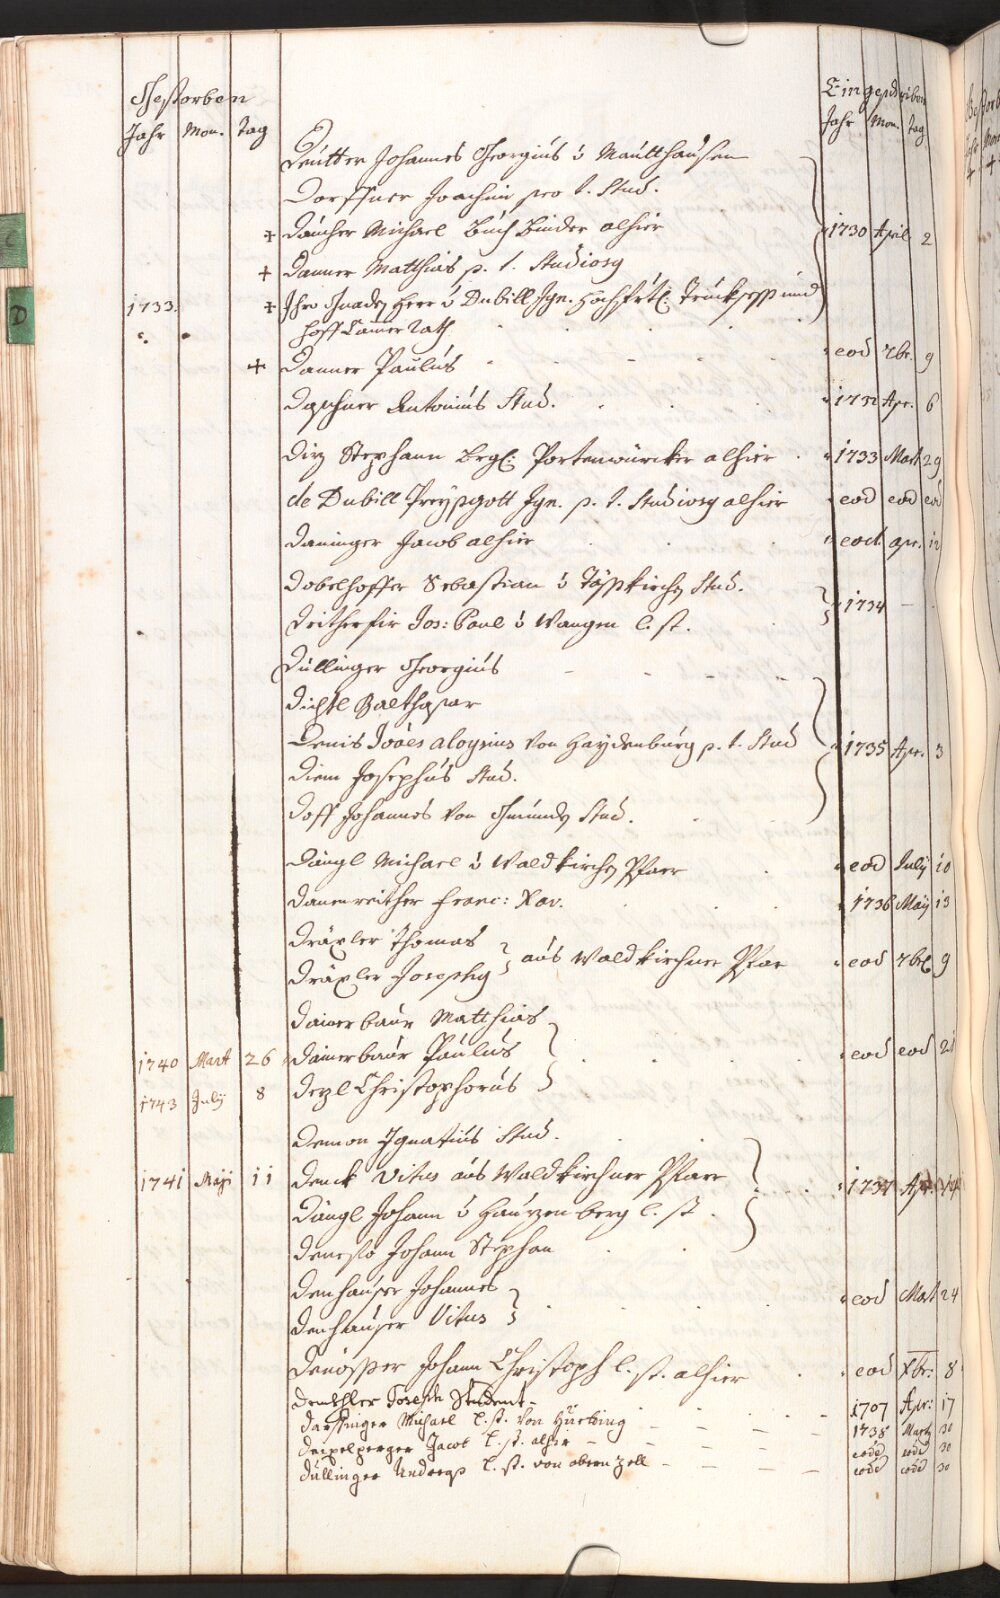 Gestorben Eingeschriben
Jahr Mon. Tag Jahr Mon. Tag
Deutter Johannes Georgius v Mautthausen
Dorffner Joachim pro t. Stud.
+ Daucher Michael Buchbinder alhier 1730 April 2
+ Danner Matthias p. t. Studiosg
1733. + Ihro Gnaden Herr v Dubill Ign. Hochfrtl. Truchsess und
Hoff Camer Rath
+ Danner Paulus eod 7br. 9
Dachner Antonius Stud. 1732 Apr. 6
Dirz Stephann brgl: Portenwürcker alhier 1733 Mart 29
de Dubill Preysgott Ign. p. t. Studiosg alhier eod eod eod
Daninger Jacob alhier eod. apr. 12
Dobelhoffer Sebastian v Stud.
Jos: Paul v Wangen l. st. 1734
Düllinger Georgius
Dichtl Balthasar
Denis Joaes aloysius von Haydenburg p. t. Stud 1735 Apr. 3
Diem Josephus Stud.
Doff Johannes von Gmündn Stud.
Dängl Michael v Waldkirchn Pfarr eod July 10
Danenreither Franc: Xav. 1736 Maij 13
Dräxler Thomas
Dräxler Josephg aus Waldkirchner Pfar eod 7br 9
Dainerbaur Matthias
1740 Mart 26 Dainerbaur Paulus eod eod 21
1743 July 8 Dezl Christophorus
Demon Ignatius Stud.
1741 Maji 11 Denck Vitus aus Waldkirchner Pfarr 1737 Apr. 14
Dängl Johann v Hauzenberg l. st.
Johann Stephan
Denhauser Johannes eod Mart 24
Denhauser Vitus
Johann Christoph l. st. alhier eod Xbr: 8
Joseph Student 1707 Apr: 17
Michael l. st. von 1738 Marty 30
Deixelperger Jacob l. st. alhir eode eode 30
Düllinger Andreas l. st. von obern zell eode eode 30
C
D